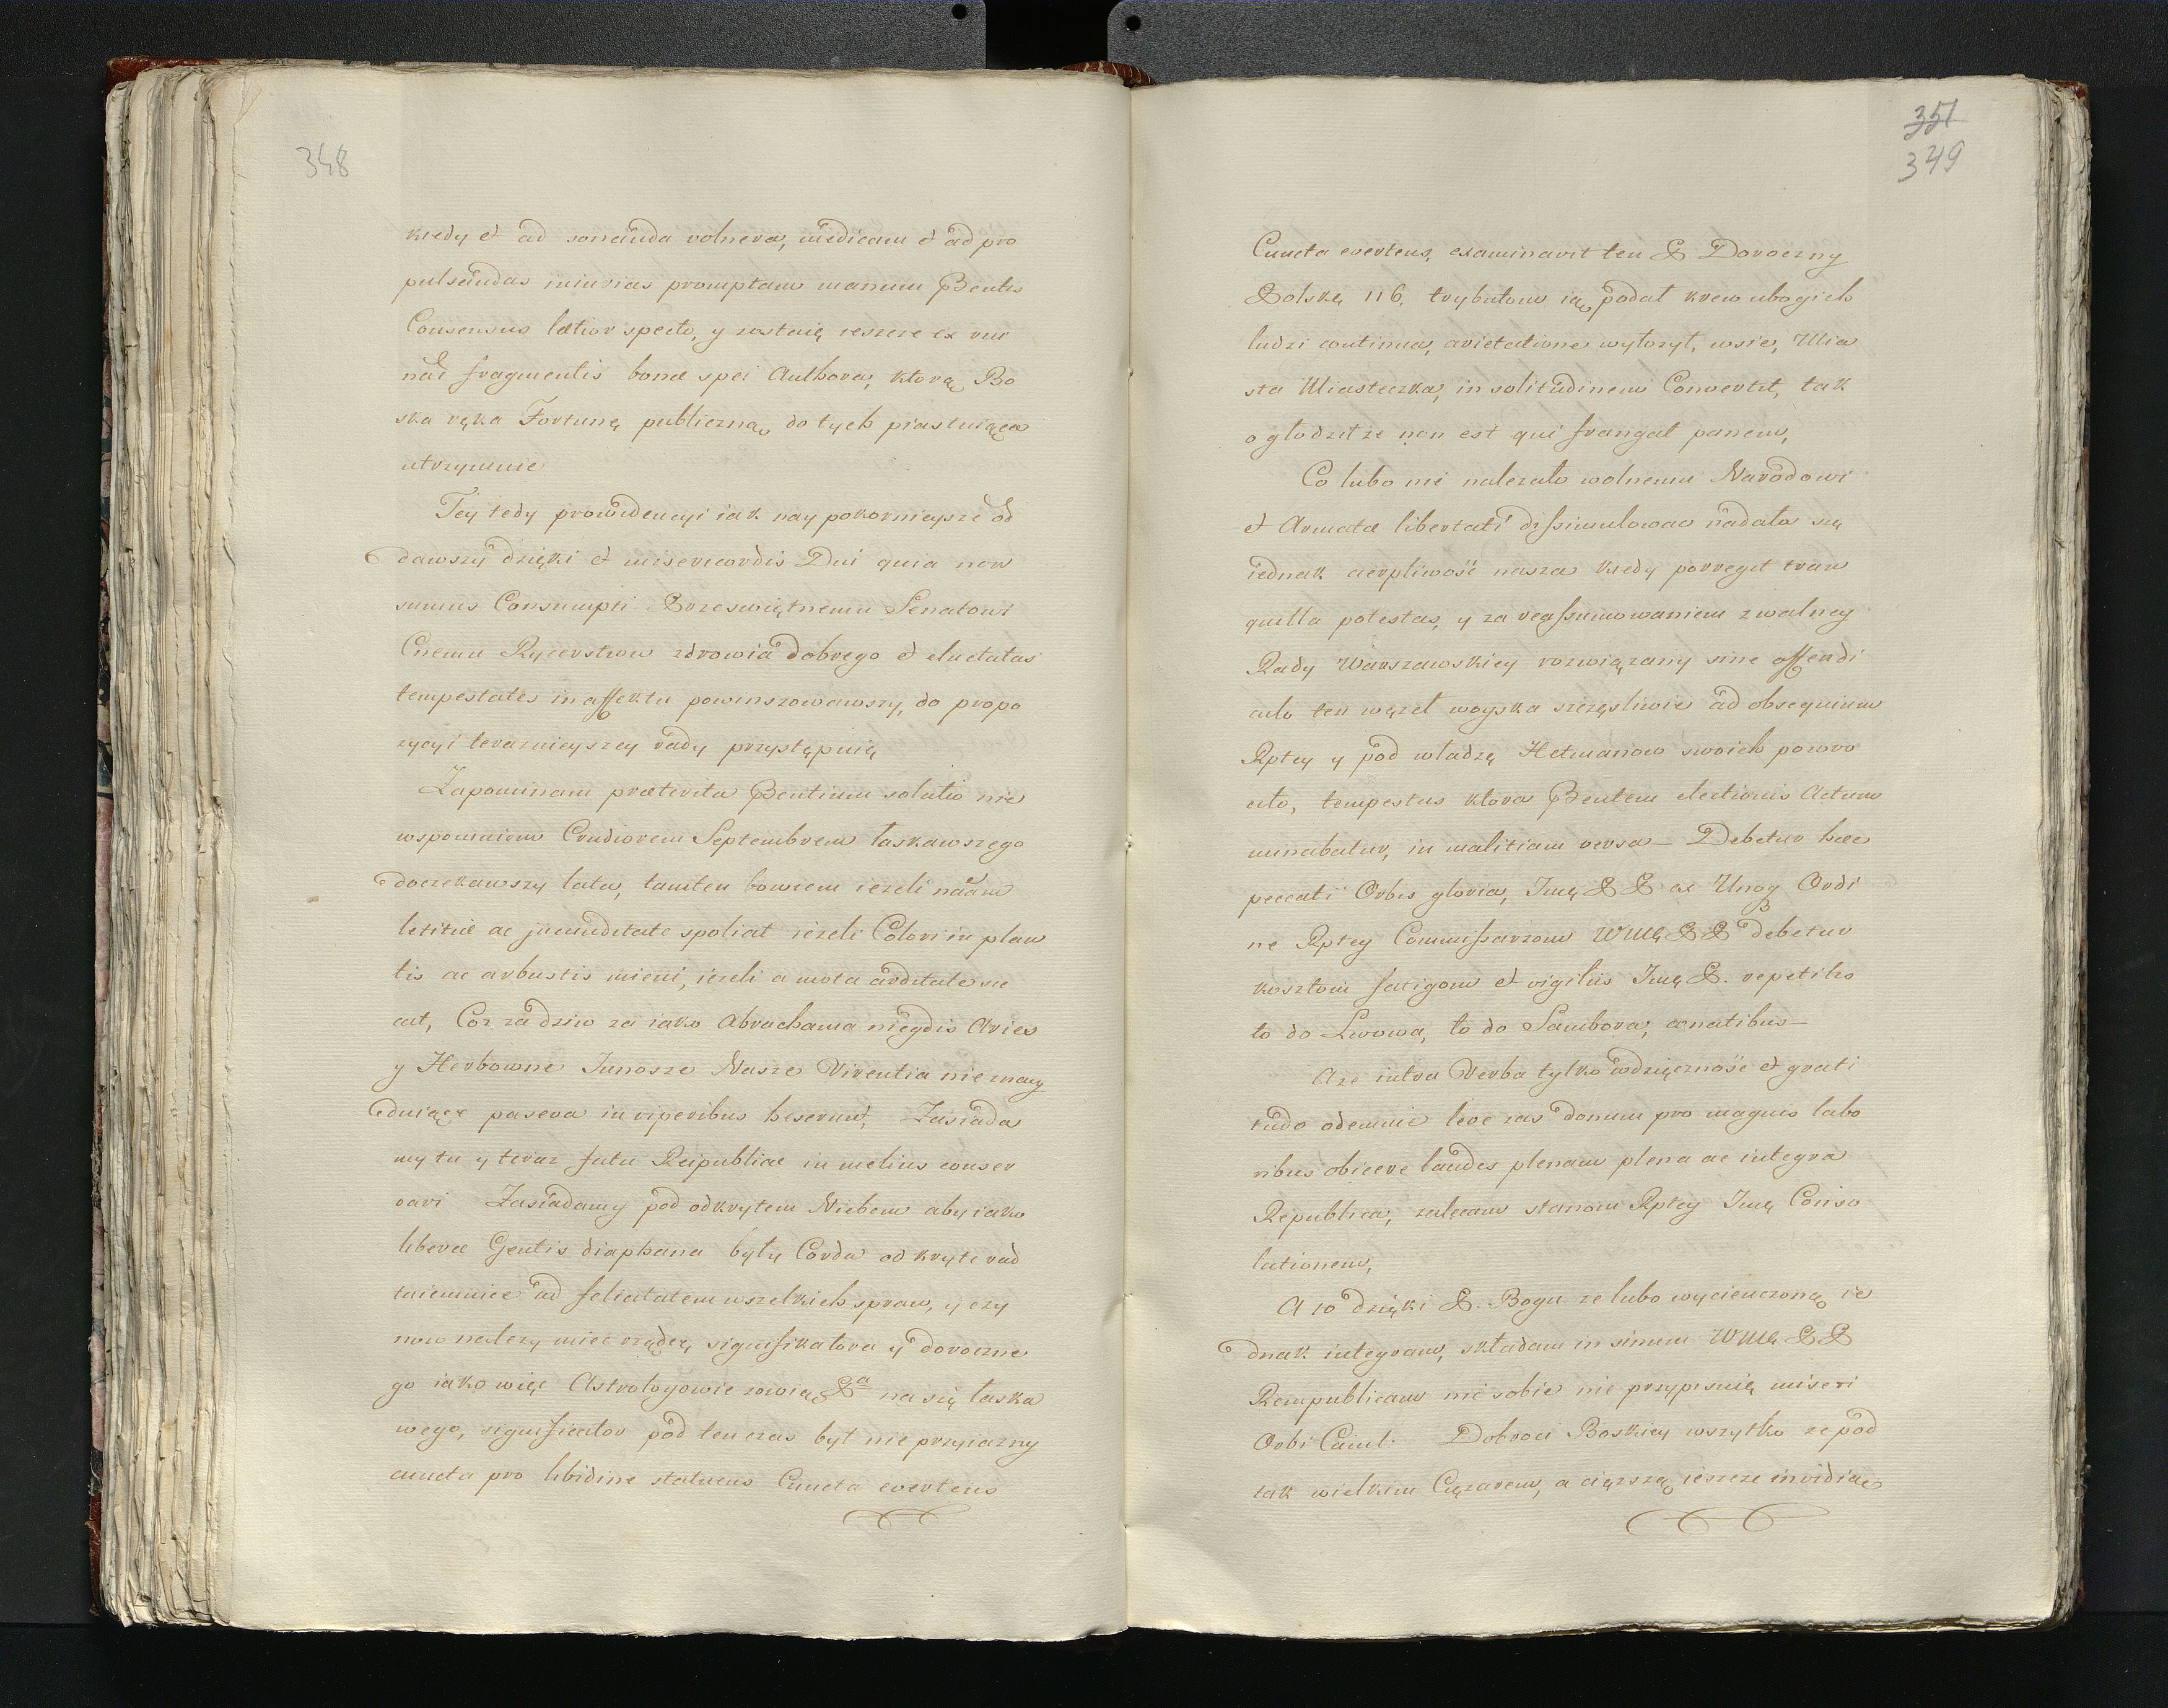 348
kiedy et ad sonanda volnera, medicam et ad pro
pulsandas iniurias promptam manum Gentis
Consensus lætior specto, y zostaię ieszcze ex rui
næ fragmentis bonæ spei Authora, ktorą Bo
ska ręka Fortunę publiczną do tych piastuiąca
utrzymuie
Tey tedy prowidencyi iak nay pokorniejsze od
dawszy dzięki et misericordis Dni quia non
sumus Consumpti Przeświętnemu Senatowi
Cnemu Rycerstwu zdrowia dobrego et eluctatas
tempestates in affektu powinszowawszy, do propo
zycyi teraznieyszey rady przystępuię
Zapominam præterita Gentium solutio nie
wspomniem Crudiorem Septembrem łaskawszego
doczekawszy lata, tamten bowiem iezeli naam
letitiæ ac jucunditate spoliat iezeli Colori in plan
tis ac arbustis mieni, iezeli a mota arditate sie
cat, Coz za dziw za iako Abrachama niegdis Aries
y Herbowne Junosze Nasze Virentia nie znay
duiące paseva in viperibus heserunt, Zasiada
my tu y teraz fatu Reipublicæ in melius conser
vari Zasiadamy pod odkrytem Niebem aby iako
liberæ Gentis diaphana były Corda od kryte rad
taiemnice ad felicitatem wszelkich spraw, y czy
now nalezy miec rządcę, signifikatora y doroczne
go iako więc Astrologowie zowią Pa na się łaska
wego, significator pod ten czas był nie przyiazny
cuncta pro libidine statuens Cuncta evertens
351
349
Cuncta evertens, examinavit ten P Doroczny
Polskę 116. trybutom ią podał krew ubogich
ludzi continua, arietatione wytozył, wsie, Mia
sta Miasteczka, in solitudinem Convertit, tak
ogłodził ze non est qui frangat panem,
Co lubo nie nalezało wolnemu Narodowi
et Armatæ libertati dissimulowac nadała się
iednak cierpliwość nasza kiedy porregit tran
quilla potestas, y za reassumowaniem zwalney
Rady Warszawskiey rozwiązany sine offendi
culo ten węzeł woyska szczęsliwie ad obsequium
Rptey y pod władzę Hetmanow swoich powro
ciło, tempestas ktora Gentem electionis Actum
minabatur, in malitiam versa – Debetur hæc
peccati Orbis gloria, Imę P P ex Unog Ordi
ne Rptey Commissarzom WMę P P debetur
kosztom fatigom et vigiliis Imę P. repetitio
to do Lwowa, to do Sambora, conatibus –
Aze intra Verba tylko wdzięczność et grati
tudo odemnie leve zas donum pro magnis labo
ribus obicere laudes plenam plena ac integra
Republica, zalęcam stanom Rptey Imę Conso
lationem,
A io dzięki P. Bogu ze lubo wycienczoną ie
dnak integram, składam in sinum WMę P P
Rempublicam nie sobie nie przypisuię miseri
Orbi Caiul: Dobroci Boskiey wszytko ze pod
tak wielkim Cięzarem, a cięzszą ieszcze invidiæ